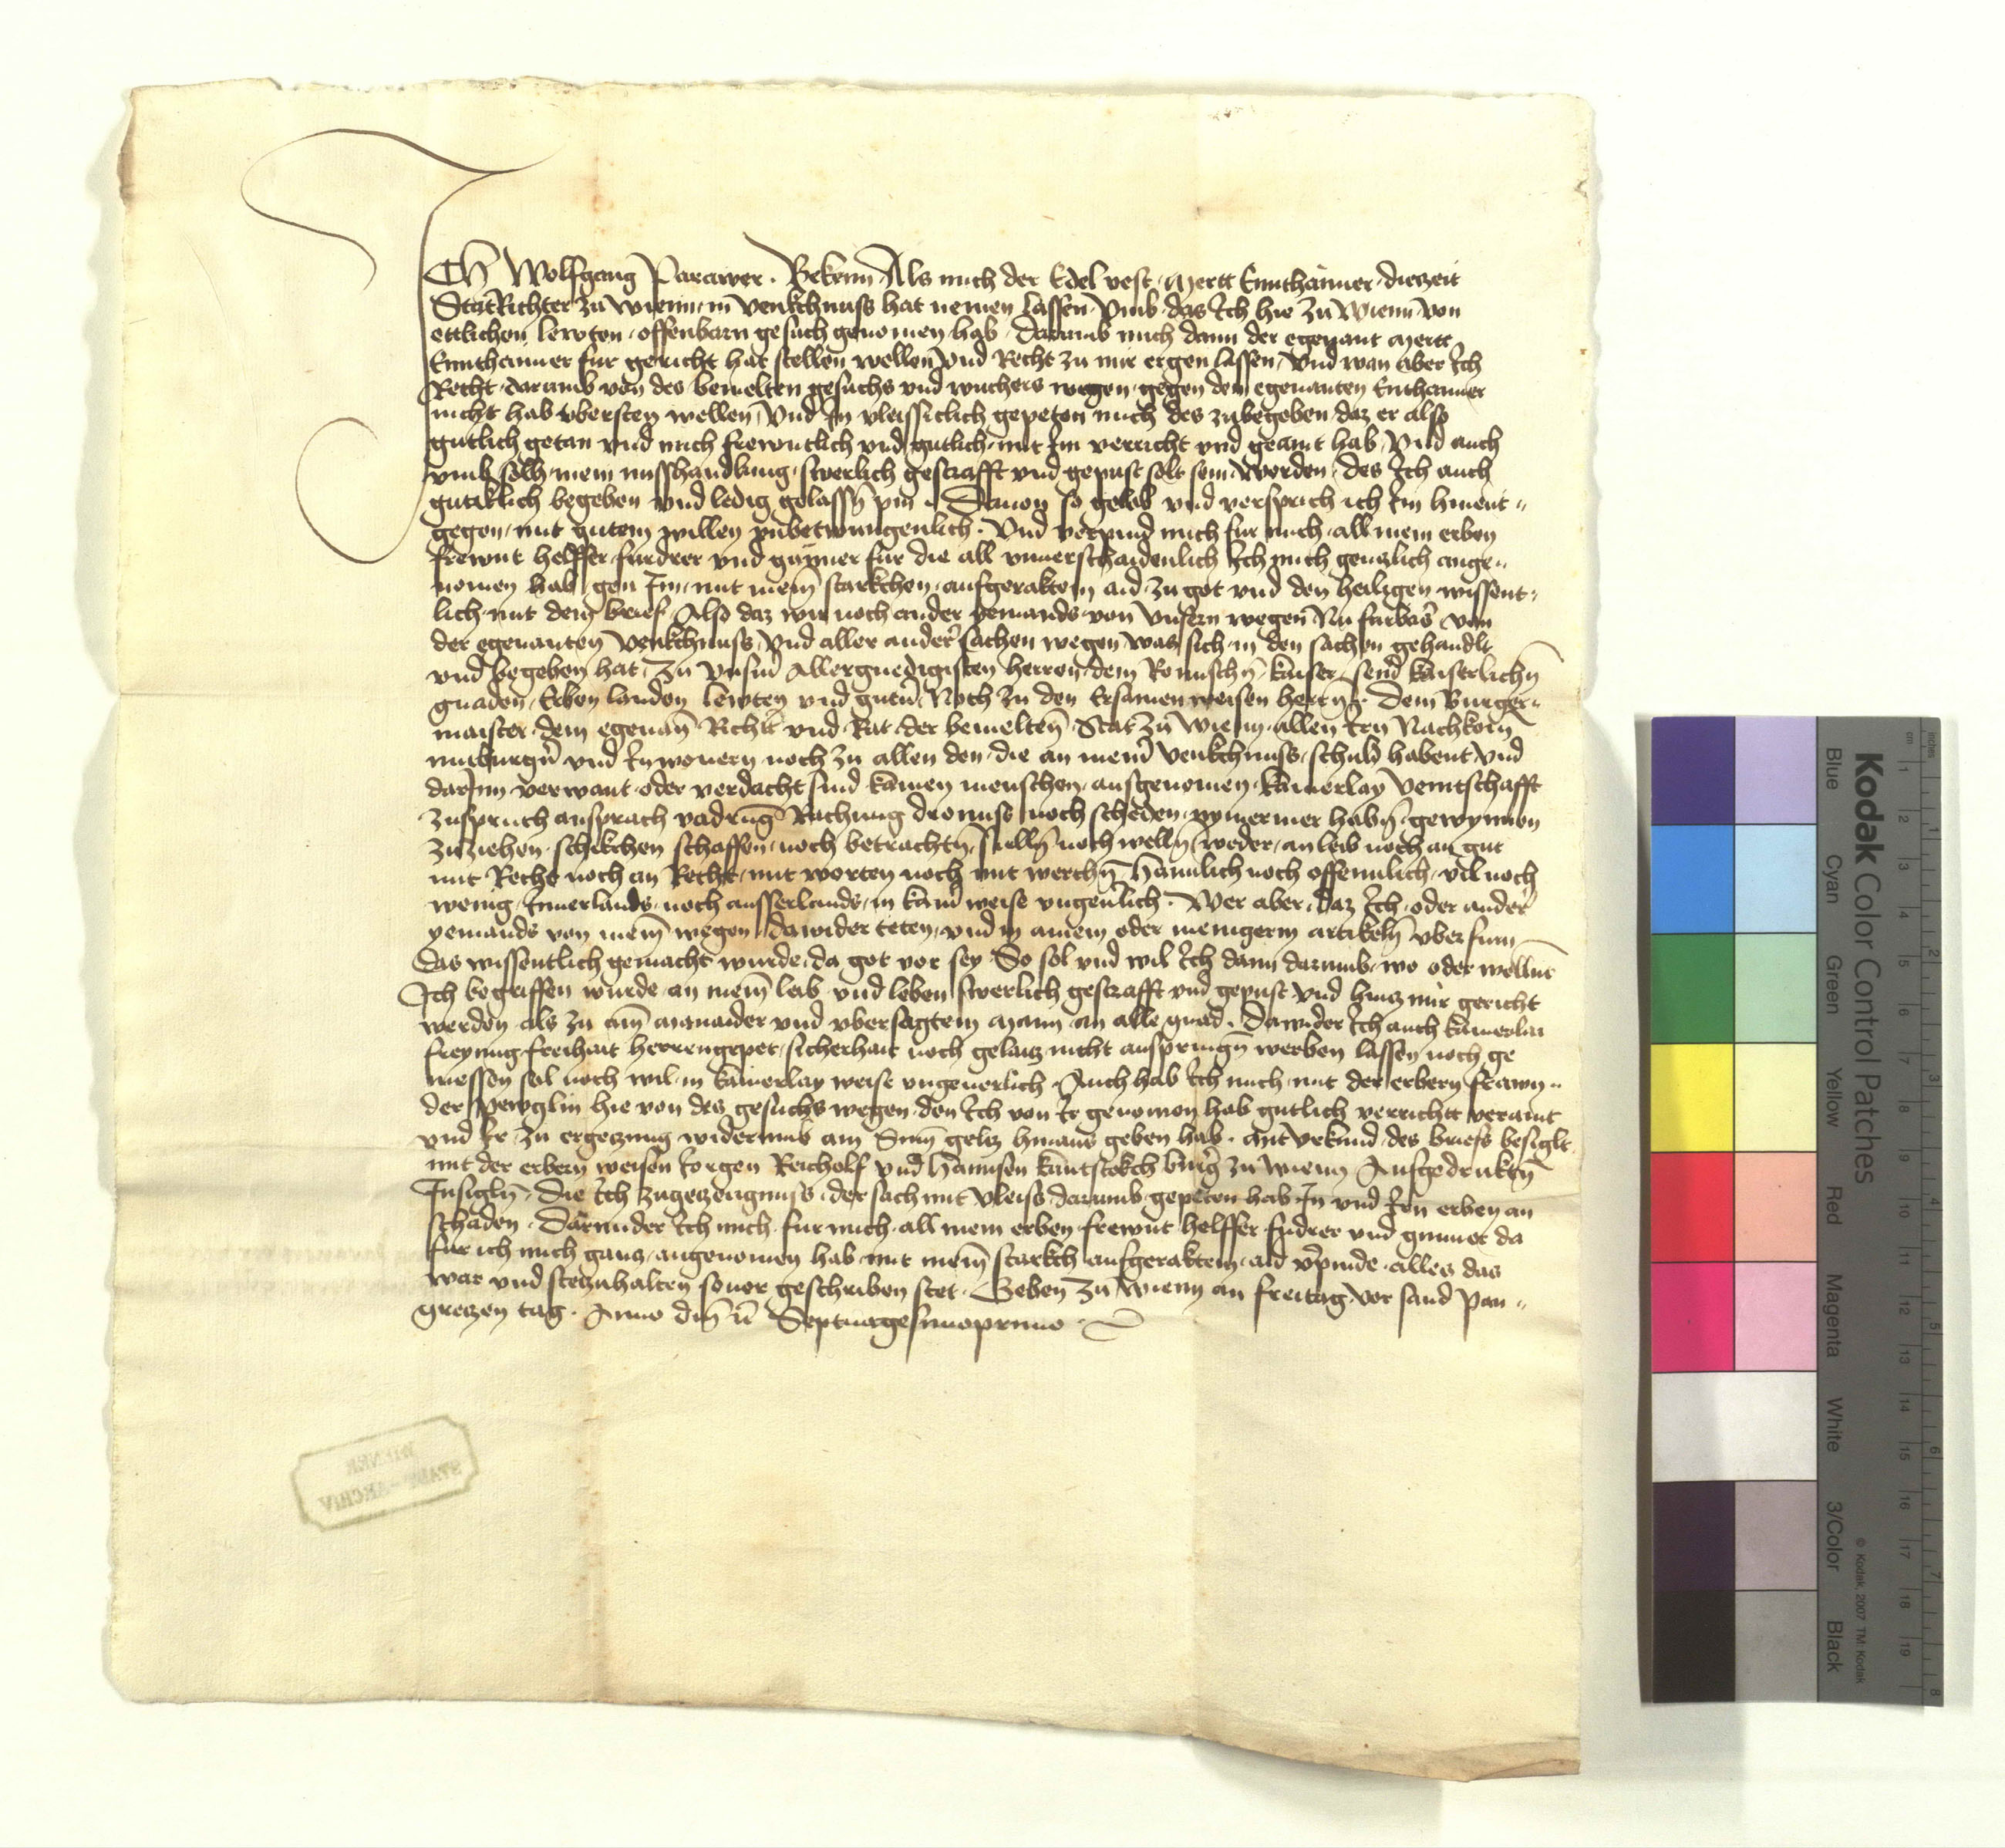 ICh Wolfgang Parawer. Bekenn Als mich der Edel vest mertt Ennthaimer diezeit
StatRichter zu wienn in venkchnuss hat nemen lassen vmb das Ich hie zu Wienn von
ettlichen lewten offenbarn gesuch genomen hab darumb mich dann der egenant mertt
Ennthaimer fur gericht hat stellen wellen vnd Recht zu mir ergen lassen Vnd wan aber Ich
Recht darumb von des bemelten gesuchs vnd wuchers wegen gegen dem egenanten Enthaimer
nicht hab vbersten wellen Vnd In vleissiclich gepeten mich des zubegeben daz er also
gutlich getan vnd mich frewntlich vnd gutlich mit Im verricht vnd geaint hab Vnd auch
vmb solh mein misshandlung swerlich gestrafft vnd gepust solt sein worden des Ich auch
gutiklich begeben vnd ledig gelassn pin. Dauon so gelob vnd versprich ich Im hinent„
gegen mit gutem willen vnbetwungenlich. Vnd verpind mich fur mich all mein erben
frewnt helffer furdrer vnd gunner fur die all vnuerschaidenlich Ich mich genzlich ange„
nomen hab gen Im mit meim starkchen aufgerakten aid zu got vnd den heiligen wissent„
lich mit dem brief Also daz wir noch ander yemands von vnsern wegen Nu furbas von
der egenanten venkchnuss Vnd aller ander sachen wegen was sich in den sachen gehandlt
vnd begeben hat Zu vnserm allergnedigisten herren dem Romischn kaiser seind kaiserlichn
gnaden Erben landen lewten vnd gutern Noch zu den Ersamen weisen herrn. dem Burger„
maister dem egenan Richter vnd Rat der bemelten Stat zu Wienn allen Irn Nachkomn
mitburgern vnd Inwonern noch zu allen den die an meinr venkchnuss schuld habent vnd
darInn verwant oder verdacht sind kainen menschen ausgenomen kainerlay veintschafft
zuspruch ansprach vadrung Rachung dronuss noch scheden nymermer habn gewynnen
zuziehen schikchen schaffen noch betrachtn sulln noch welln weder an leib noch an gut
mit Recht noch an Recht mit worten noch mit werchn haimlich noch offennlich vil noch
wenig Innerlands noch ausserlands in kainr weise vngeuerlich. Wer aber daz Ich oder ander
yemands von meim wegen dawider teten vnd in ainem oder menigerm artikeln vberfurn
das wissentlich gemacht wurde da got vor sey So sol vnd wil Ich dann darumb wo oder wellnt
Ich begriffen wurde an meim leib vnd leben swerlich gestrafft vnd gepust vnd hinz mir gericht
werden als zu aim mainaider vnd vbersagtem mann an alle gnad. Dawider Ich auch kainerlai
freyung freihait herrengepet sicherhait noch gelaiz nicht anspringn werben lassen noch ge
niessen sol noch wil in kainerlay weise vngeuerlich Auch hab Ich mich mit der erbern frawn„
der Pewglin hie von des gesuchs wegen den Ich von Ir genomen hab gutlich verricht veraint
vnd Ir zu ergetzung widerumb ain Sum geltz hinaus geben hab. mit vrkund des briefs besiglt
mit der erbern weisen Jorgen Reicholf vnd Hannsen kantstokch burger zu wienn Aufgedruktn
Insigln. Die Ich zugezeugnuss der sach mit vleiss darumb gepeten hab In vnd Irn erben an
schaden. Darunder Ich mich fur mich all mein erben frewnt helffer furdrer vnd gunner da
fur ich mich ganz angenomen hab mit meim starkch aufgeraktem aid verpinde alles das
war vnd stetzuhalten so uor geschriben stet. Geben zu Wienn an freitag vor sand Pan„
gretzen tag. Anno dm rc Septuagesimoprimo
WIENER
STADT-ARCHIV
Kodak Color Control Patches
Blue Cyan Green Yellow Red Magenta White 3/Color Black
© Kodak, 2007 TM: Kodak
inches 1 2 3 4 5 6 7 8
cm 1 2 3 4 5 6 7 8 9 10 11 12 13 14 15 16 17 18 19